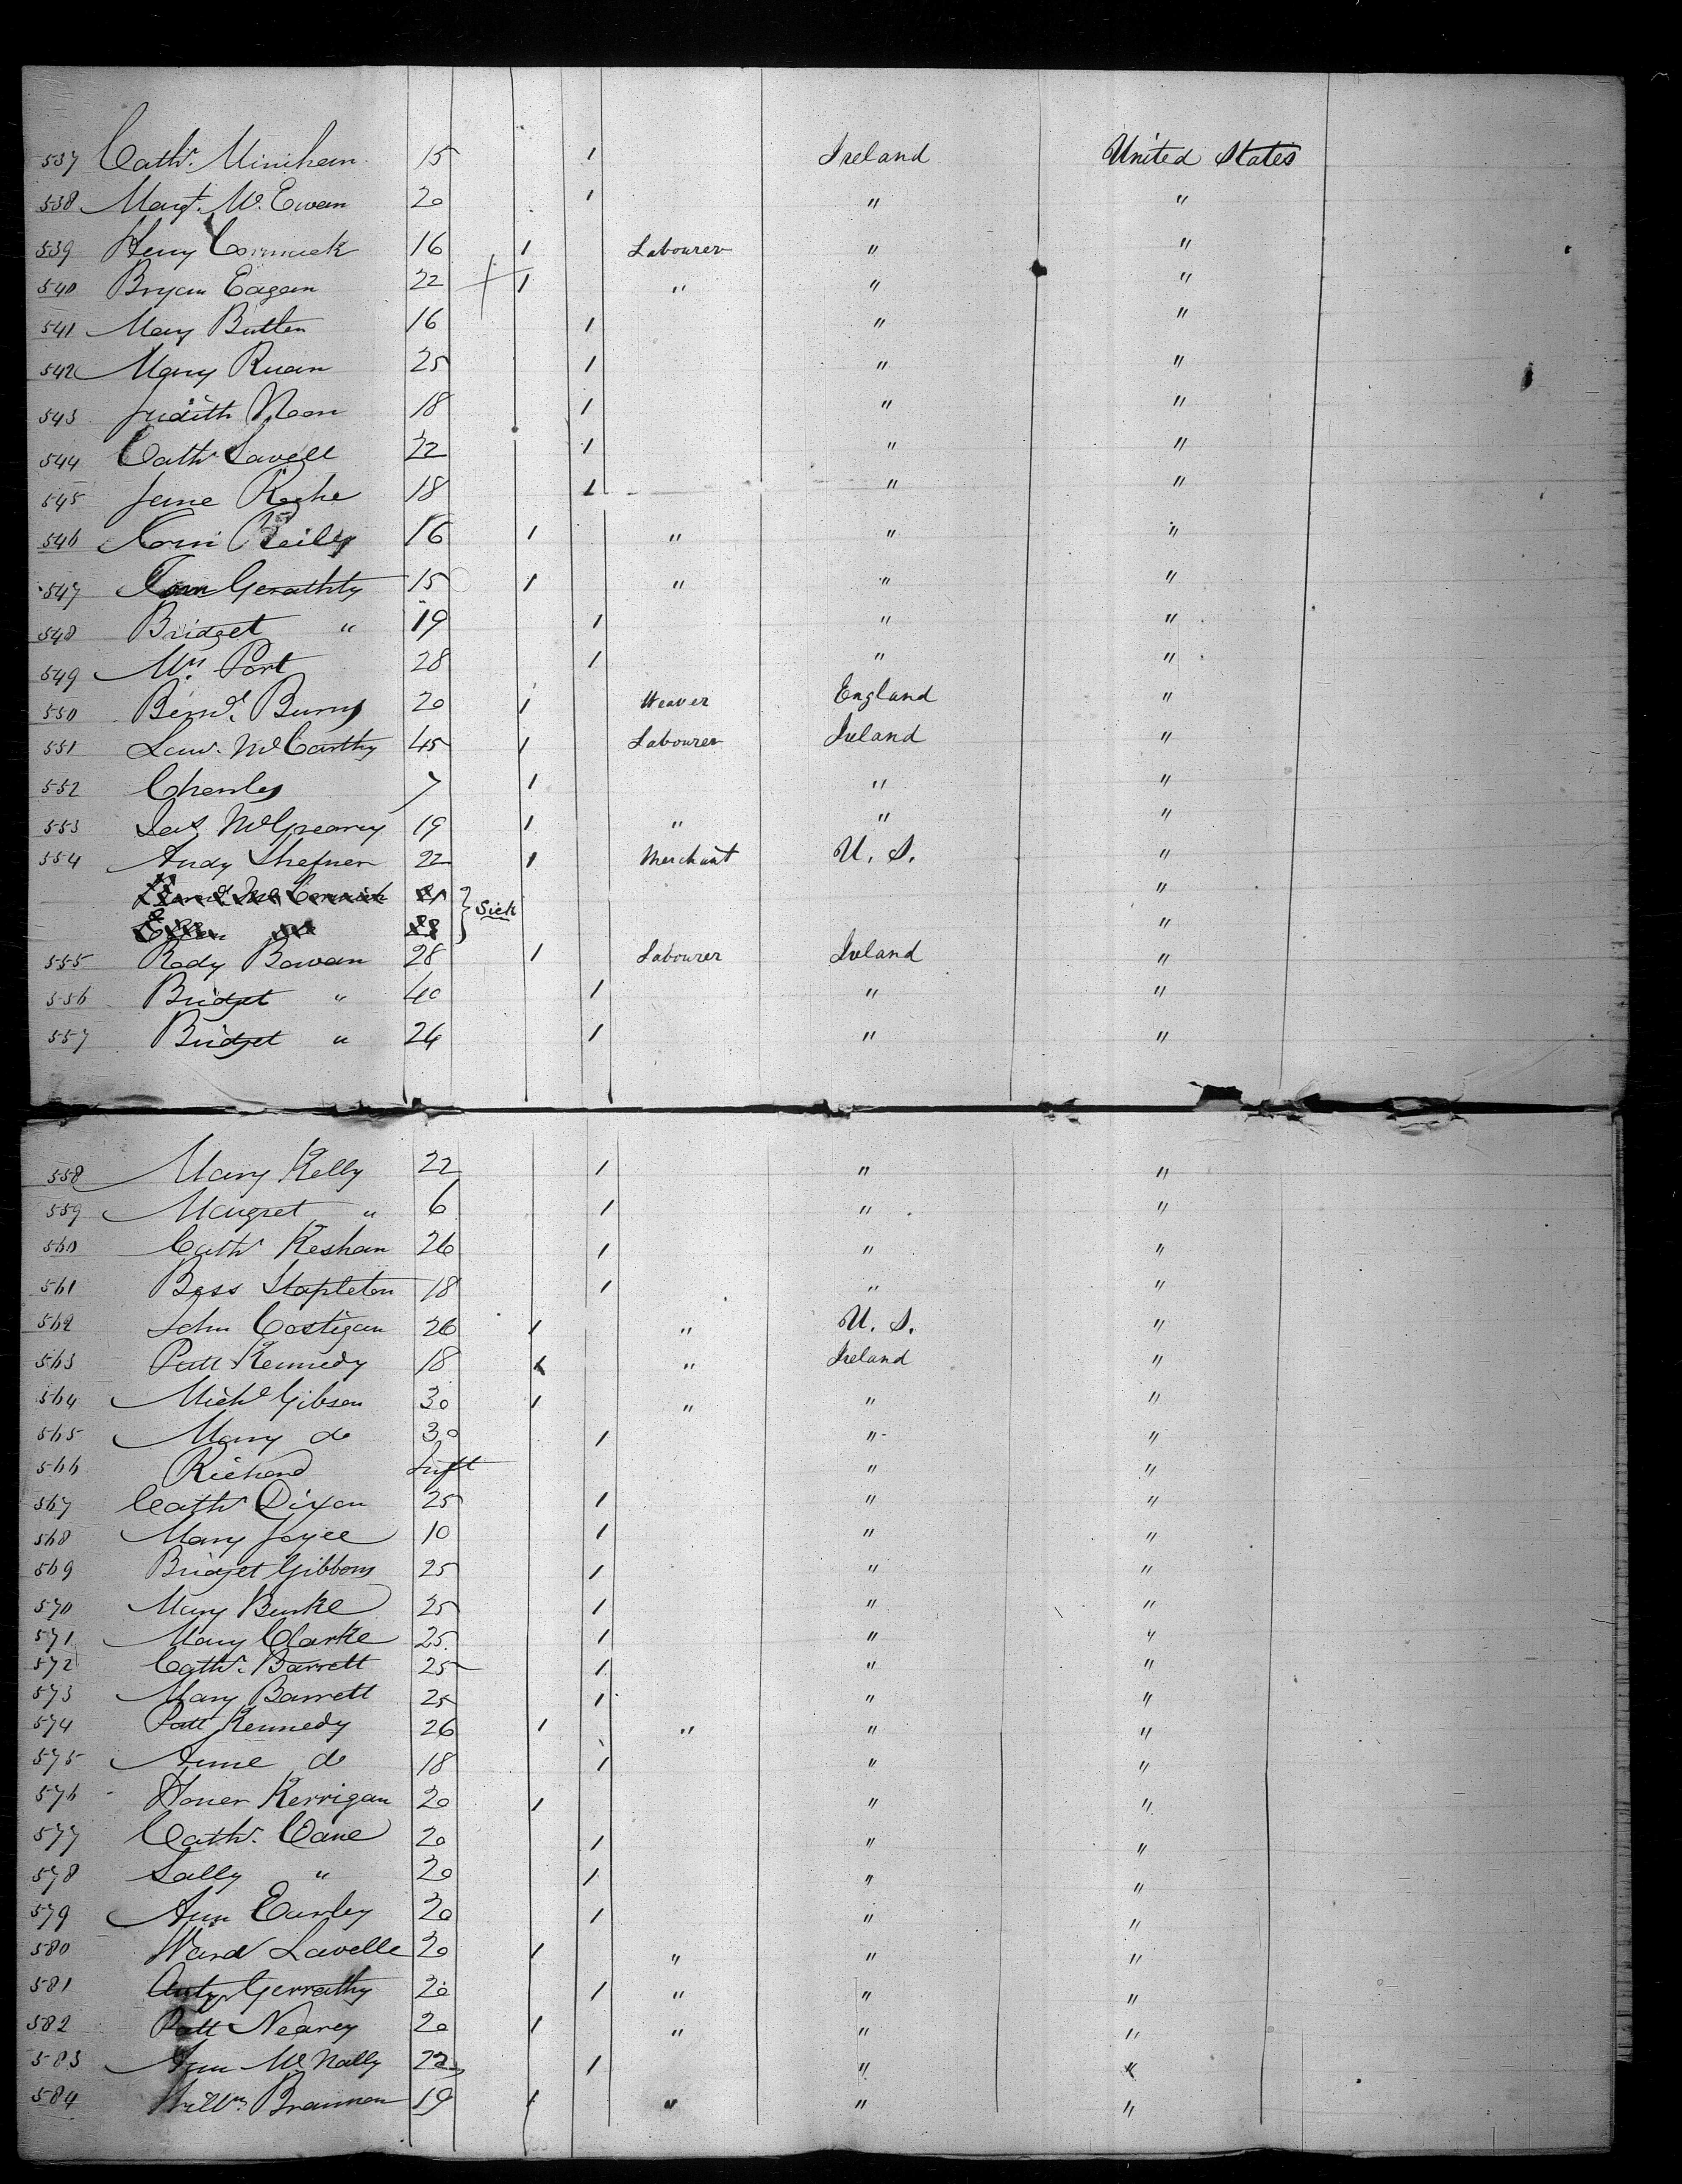 537 Cathr. Minihan 15 1 Ireland United States
538 Margt. Mc. Ewan 20 1 " "
539 Henry Cormick 16 1 Labourer " "
540 Bryan Eagan 22 1 " " "
541 Mary Butler 16 1 " "
542 Mary Ruan 25 1 " "
543 Judith Noon 18 1 " "
544 Cathr Lavell 22 1 " "
545 Jane Roche 18 1 " "
546 Reily 16 1 " " "
547 Gerathty 15 1 " " "
548 Bridget " 19 1 " "
549 Mrs. Port 28 1 " "
550 Bernd. Burns 20 1 Weaver England "
551 Law. McCarthy 45 1 Labourer Ireland "
552 Charles 7 1 " "
553 Jas McGreary 19 1 " " "
554 Andy Shefner 22 1 Merchant U. S. "
Sick "
"
555 Rody Bowan 28 1 Labourer Ireland "
556 Bridget " 40 1 " "
557 Bridget " 24 1 " "
558 Mary Kelly 22 1 " "
559 Margret " 6 1 " "
560 Cathr Keshan 26 1 " "
561 Bess Stapleton 18 1 " "
562 John Costigan 26 1 " U. S. "
563 Patt Kennedy 18 1 " Ireland "
564 Michl Gibson 30 1 " " "
565 Mary do 30 1 " "
566 Richard Inft " "
567 Cathr Dixon 25 1 " "
568 Mary Joyce 10 1 " "
569 Bridget Gibbons 25 1 " "
570 Mary Burke 25 1 " "
571 Mary Clarke 25 1 " "
572 Cathr. Barrett 25 1 " "
573 Mary Barrett 25 1 " "
574 Patt Kennedy 26 1 " " "
575 Anne do 18 1 " "
576 Honer Kerrigan 20 1 " "
577 Cathr. Cane 20 1 " "
578 Sally " 20 1 " "
579 Ann Earley 20 1 " "
580 Ward Lavelle 20 1 " " "
581 Anty Gerrathy 20 1 " " "
582 Patt Nearey 20 1 " " "
583 Ann McNally 22 1 " "
584 Willm. Brannan 19 1 " " "